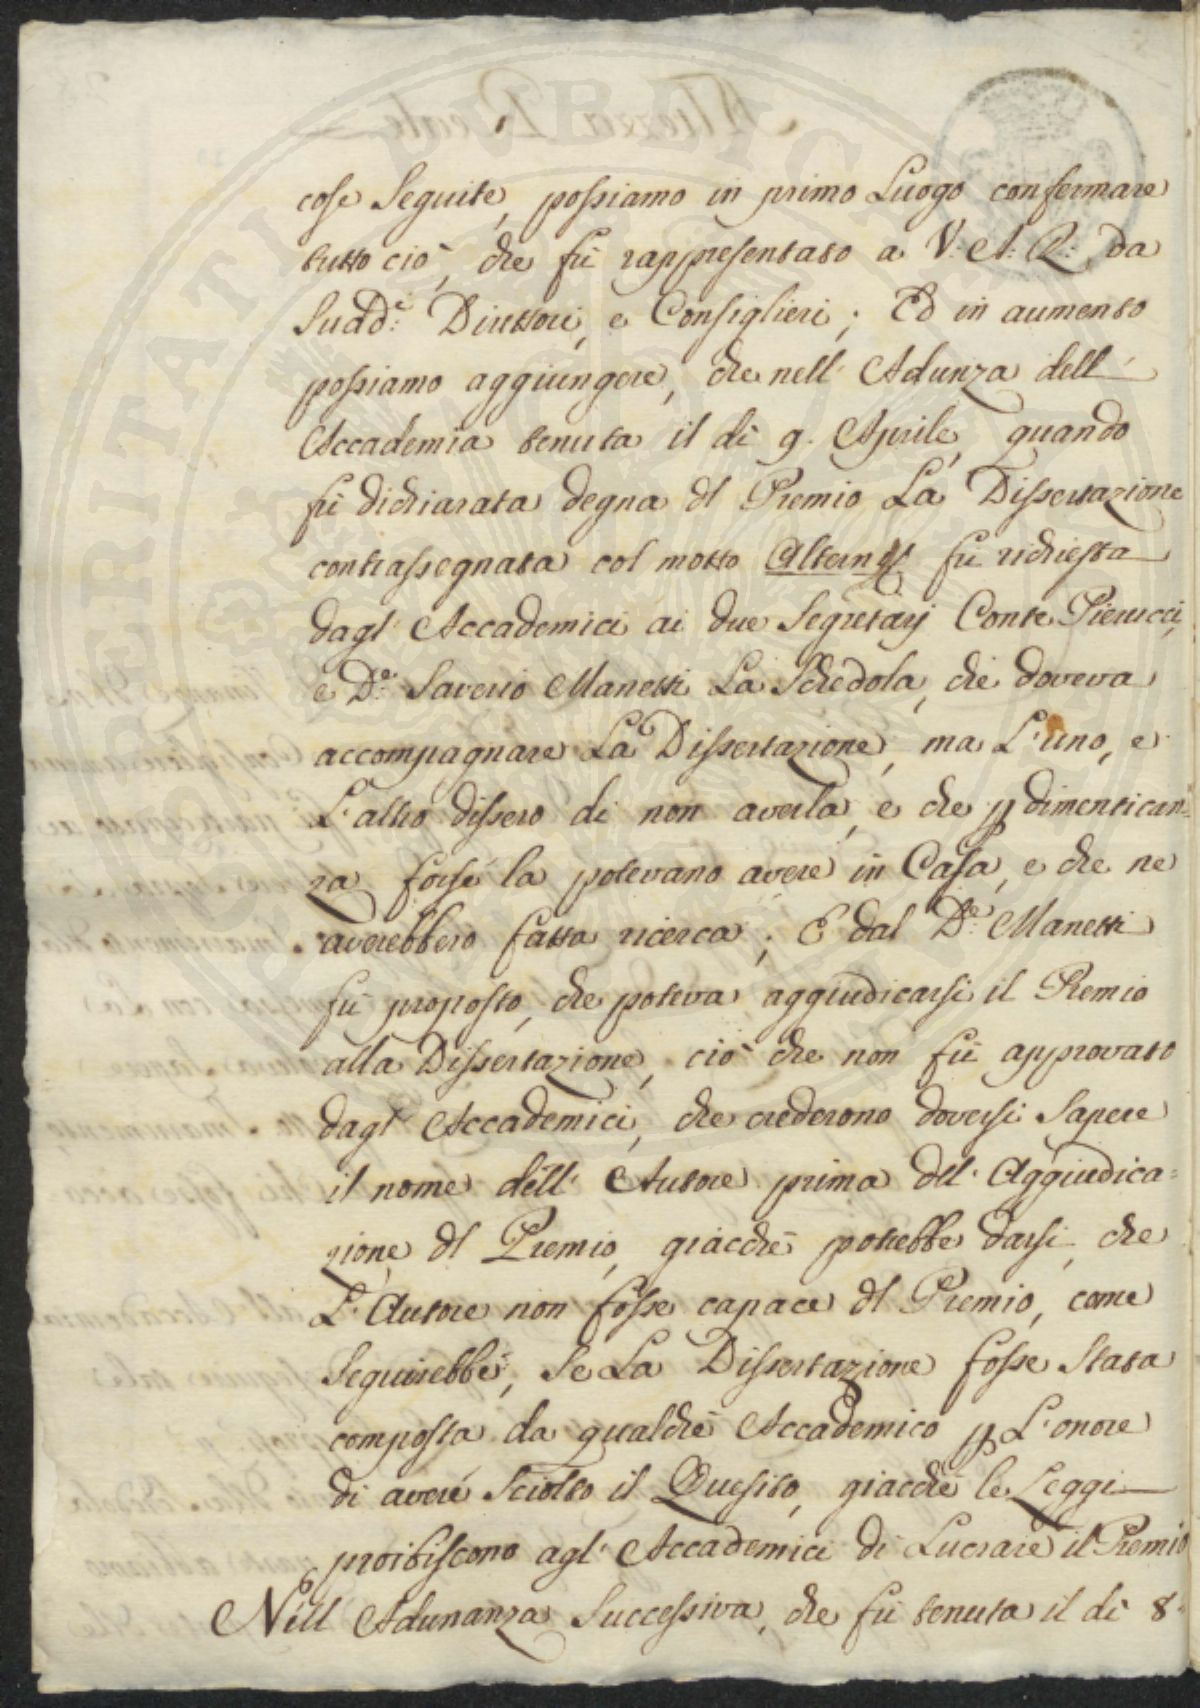 cose Seguite, possiamo in primo Luogo confermare
tutto ciò, che fù rappresentato a V: A: R: da
Sudd.i Direttori, e Consiglieri; Ed in aumento
possiamo aggiungere, che nell' Adunza dell'
Accademia tenuta il dì 9. Aprile, quando
fù dichiarata degna dl Premio La Dissertazione
contrassegnata col motto fù richiesta
dagl' Accademici ai due Segretarj Conte Pierucci,
e D.e Saverio Manetti La Schedola, che doveva
accompagnare La Dissertazione, ma L'uno, e
L'altro dissero di non averla, e che p dimentican=
za forse la potevano avere in Casa, e che ne
averebbero fatta ricerca; E dal D.e Manetti
fù proposto, che poteva aggiudicarsi il Premio
alla Dissertazione, ciò che non fù approvato
dagl' Accademici, che crederono doversi Sapere
il nome dell' Autore prima dell' Aggiudica=
zione dl Premio, giacchè potrebbe darsi, che
L'Autore non fosse capace dl Premio, come
Seguirebbe, Se La Dissertazione fosse Stata
composta da qualche Accademico p L'onore
di avere Sciolto il Quesito, giacchè le Leggi
proibiscono agl' Accademici di Lucrare il Premio
Nell Adunanza Successiva, che fù tenuta il dì 8.